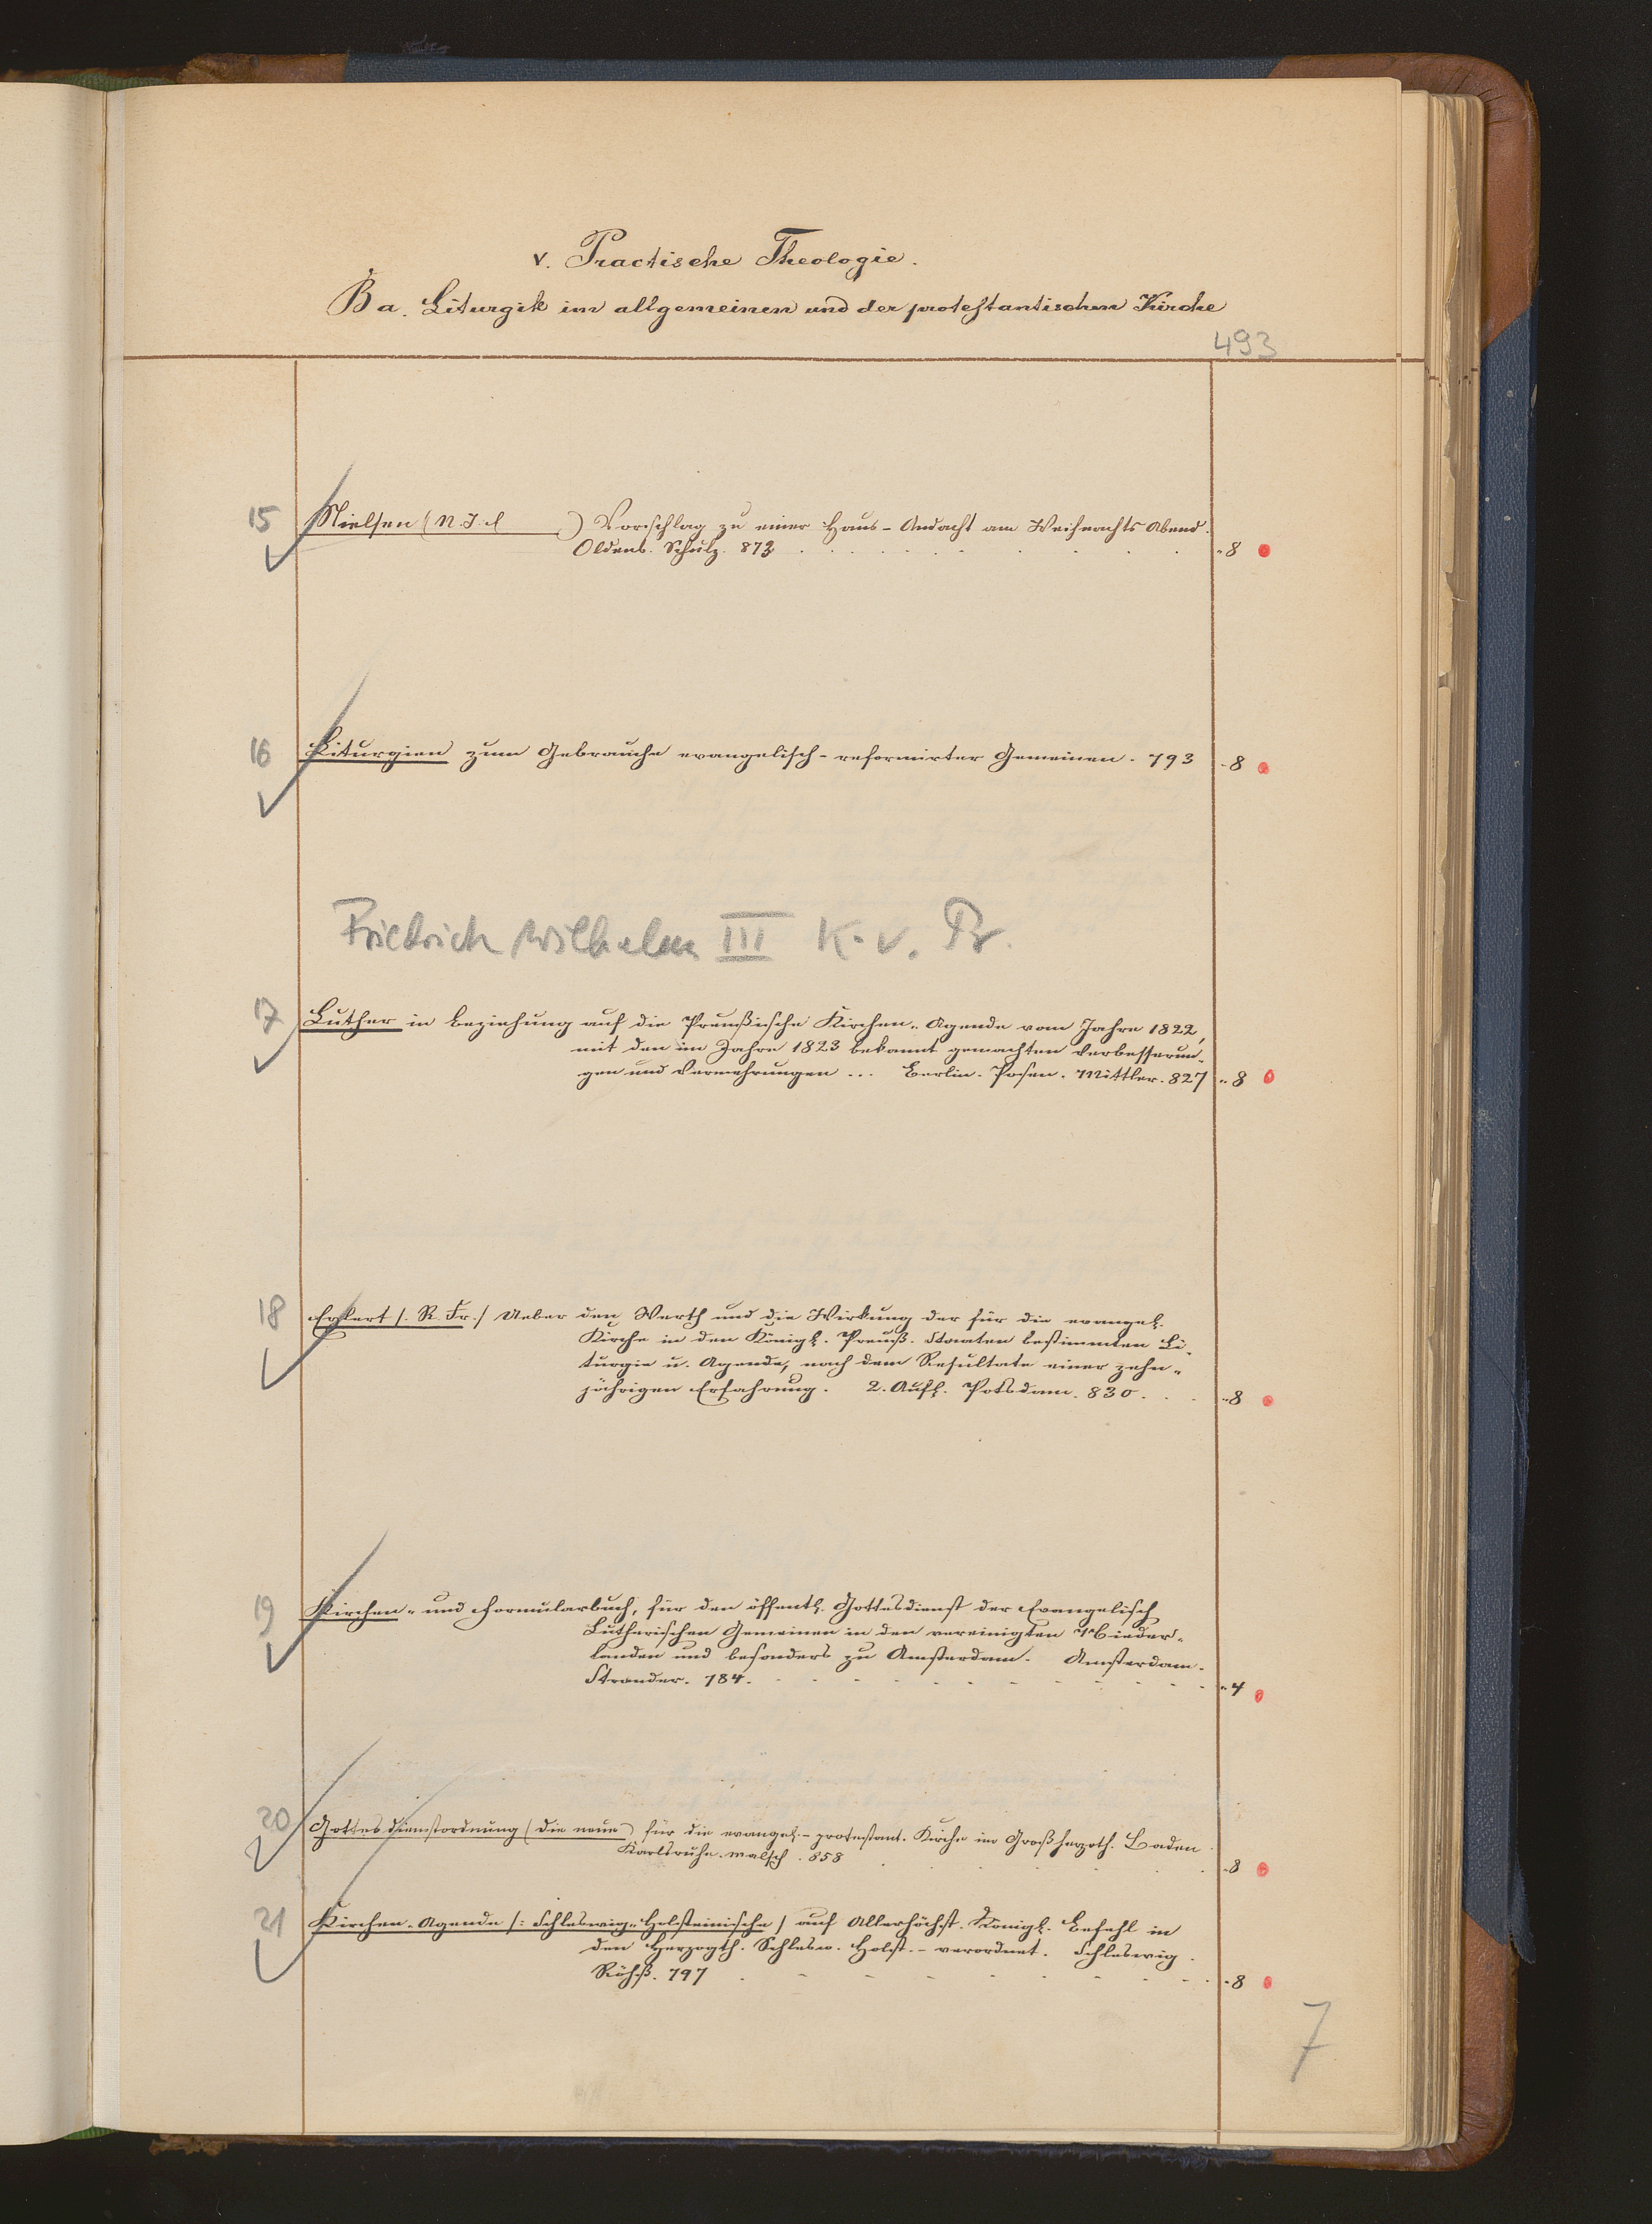 v. Practische Theologie.
Ba. Liturgik im allgemeinen und der protestantischen Kirche
493
15 Nielsen (N. J. ) Vorschlag zu einer Haus-Andacht am Weihnachts Abend.
Oldenb. Schulz. 873 . . . . . . . . . . „8
16 Liturgien zum Gebrauche evangelisch-reformirter Gemeinen. 793 „8
Friedrich Wilhelm III K. v. Pr.
17 Luther in Beziehung auf die Preußische Kirchen-Agende vom Jahre 1822,
mit den im Jahre 1823 bekannt gemachten Verbesserun-
gen und Vermehrungen ... Berlin. Posen. Mittler. 827 „8
18 Eylert /. R. Fr./ Ueber den Werth und die Wirkung der für die evangel.
Kirche in den Königl. Preuß. Staaten bestimmten Li-
turgie u. Agende, nach dem Resultate einer zehn-
jährigen Erfahrung. 2. Aufl. Potsdam. 830 . . . „8
19 Kirchen- und Formularbuch, für den öffentl. Gottesdienst der Evangelisch
Lutherischen Gemeinen in den vereinigten Nieder-
landen und besonders zu Amsterdam. Amsterdam.
Strander. 784. . . . . . . . . . . . „4
20 Gottesdienstordnung (die neue) für die evangel.-protestant. Kirche im Großherzoth. Baden.
Karlsruhe. Malsch. 858 . . . . . . . „8
21 Kirchen-Agende /: Schleswig-Holsteinische / auf Allerhöchst. Königl. Befehl in
den Herzogth. Schlesw. Holst. - verordnet. Schleswig.
Röhß. 797 . . . . . . . . . . „8
7